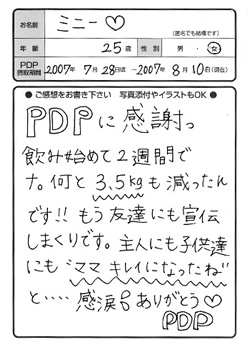 お名前 ミニー♡ (匿名でも結構です)
年齢 25歳 性別 男・女
PDP摂取期間 2007年7月28日迄~2007年8月10日(現在)
●ご感想をお書き下さい 写真添付やイラストもOK●
PDPに感謝っ
飲み始めて2週間で
ナ。何と3.5kgも減ったん
です!! もう友達にも宣伝
しまくりです。主人にも子供達
にも“ママキレイになったね”
と‥‥感涙♪ありがとう♡
PDP